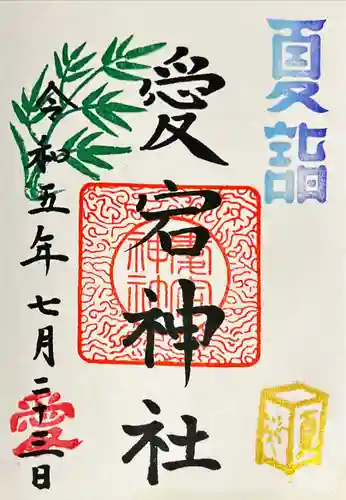 夏詣
愛宕神社
令和五年七月二十三日
愛